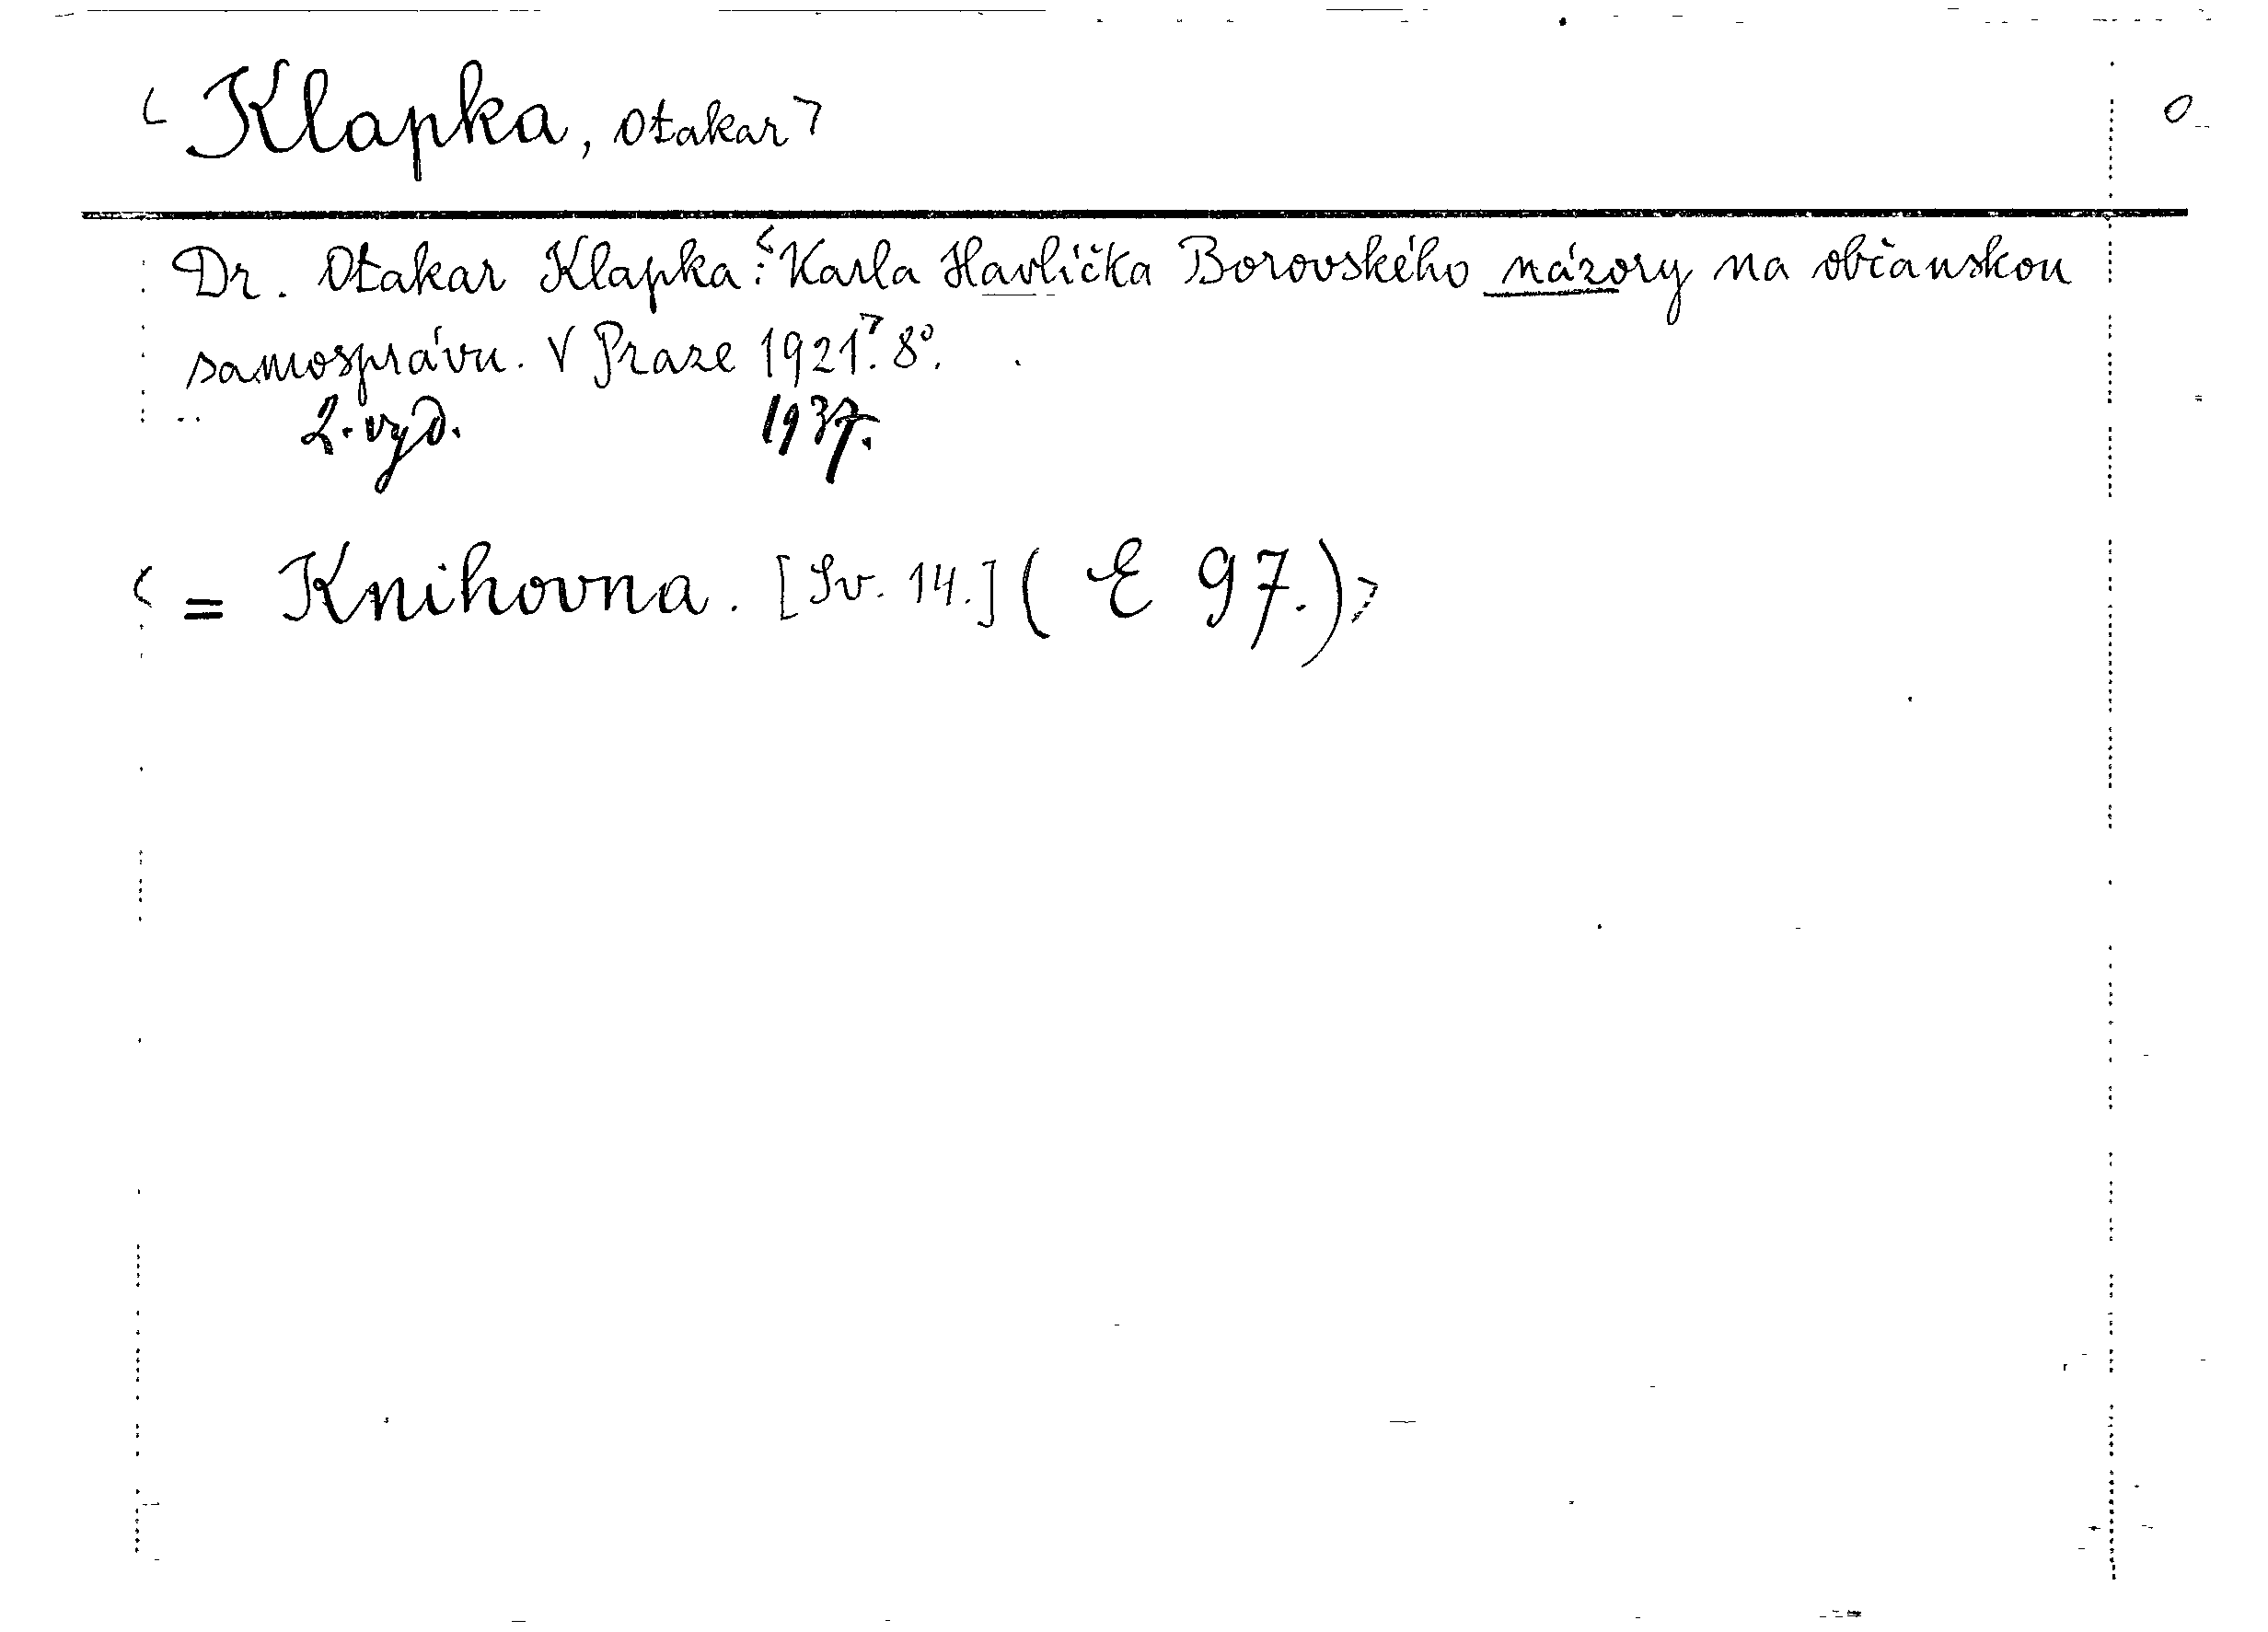 < Klapka, Otakar > O
Dr. Otakar Klapka: < Karla Havlíčka Borovského názory na občanskou
samosprávu. V Praze 1921 >. 8°.
2. vyd. 1937.
< = Knihovna. [Sv. 14.] ( E 97.) >